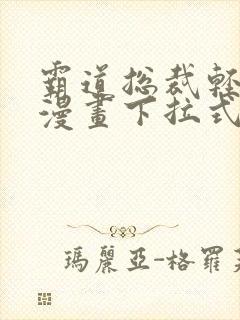 霸道总裁輕
漫畫下拉式
瑪麗亞-格羅